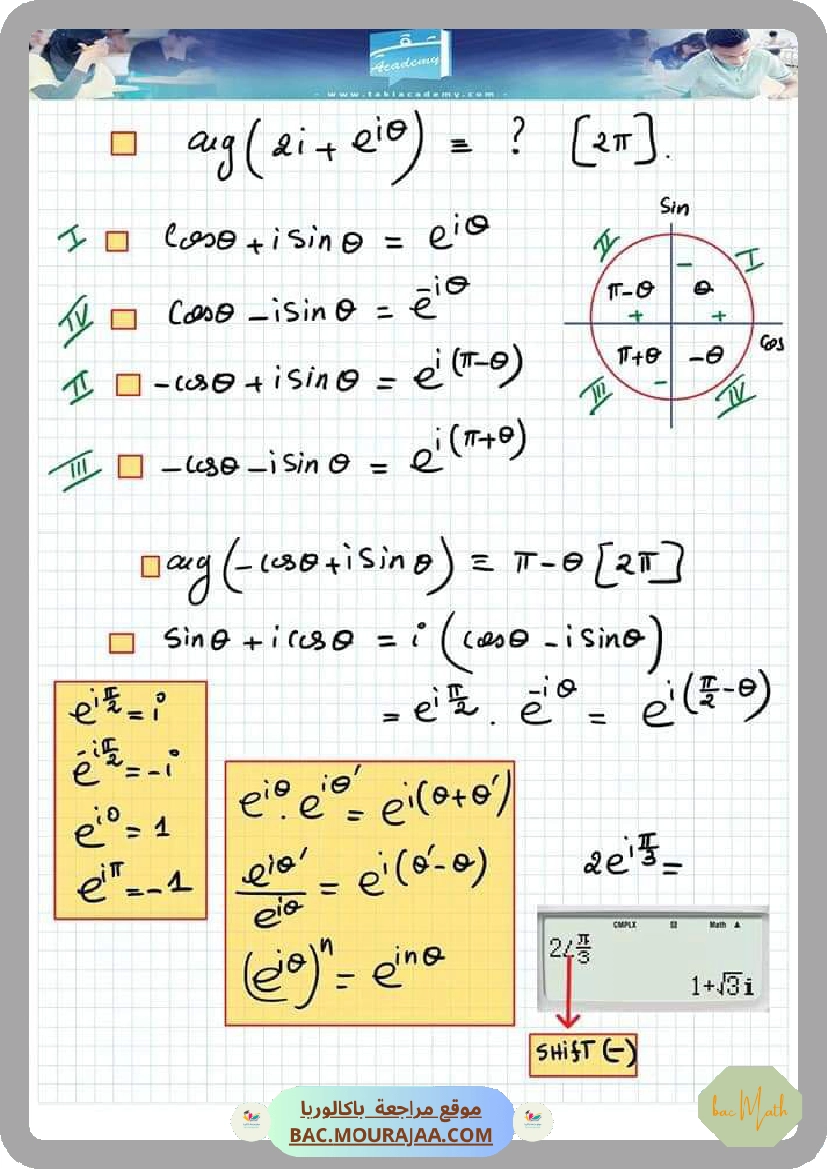 Academy
- www.takiacademy.com -
arg(2i + e^{iθ}) ≡ ? [2π].
I cosθ + i sinθ = e^{iθ}
IV cosθ - i sinθ = e^{-iθ}
II -cosθ + i sinθ = e^{i(π-θ)}
III -cosθ - i sinθ = e^{i(π+θ)}
Sin
II - I
π-θ θ
+ +
Cos
π+θ -θ
III - IV
arg(-cosθ + i sinθ) ≡ π-θ [2π]
sinθ + i cosθ = i (cosθ - i sinθ)
= e^{iπ/2} . e^{-iθ} = e^{i(π/2-θ)}
e^{iπ/2} = i
e^{-iπ/2} = -i
e^{i0} = 1
e^{iπ} = -1
e^{iθ} . e^{iθ'} = e^{i(θ+θ')}
e^{iθ'}/e^{iθ} = e^{i(θ'-θ)}
(e^{iθ})^n = e^{inθ}
2e^{iπ/3} =
CMPLX Math ▲
2∠π/3
1+√3i
SHIFT (-)
bac Math
موقع مراجعة باكالوريا
BAC.MOURAJAA.COM